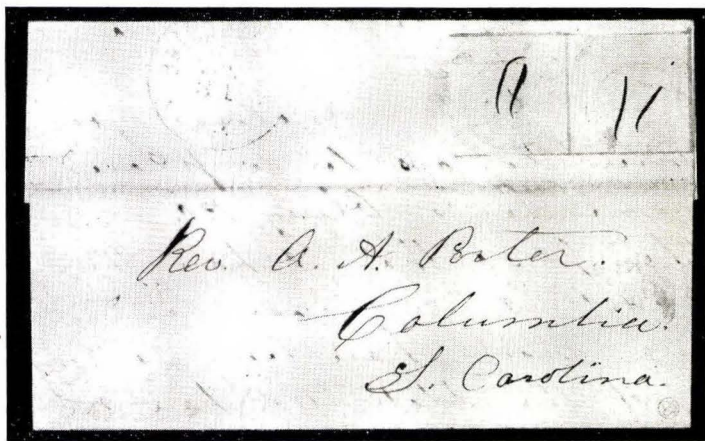 Rev. A. A. Porter.
Columbia.
S. Carolina.